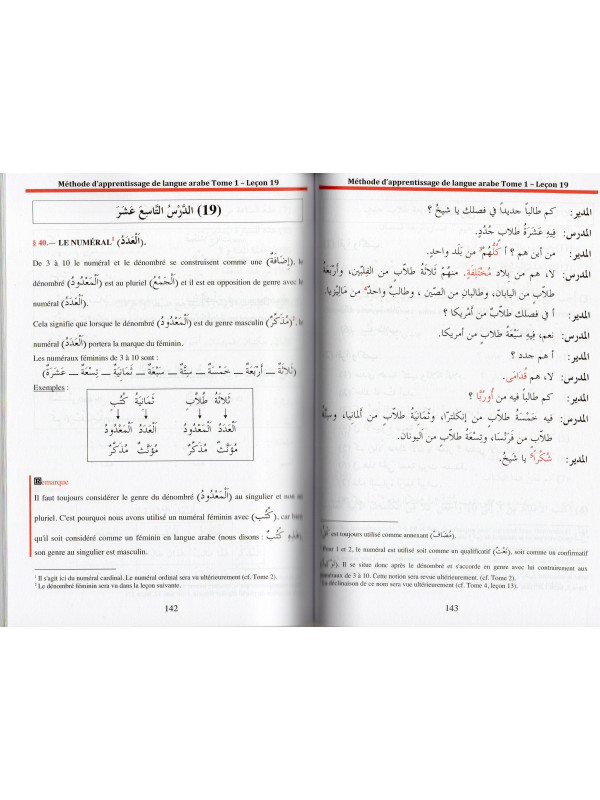 Méthode d'apprentissage de langue arabe Tome 1 – Leçon 19
(19) الدَّرْسُ التَّاسِعَ عَشَرَ
§ 40.— LE NUMÉRAL¹ (اَلْعَدَدُ).
De 3 à 10 le numéral et le dénombré se construisent comme une (إِضَافَةٌ), le
dénombré (اَلْمَعْدُودُ) est au pluriel (اَلْجَمْعُ) et il est en opposition de genre avec le
numéral (اَلْعَدَدُ).
Cela signifie que lorsque le dénombré (اَلْمَعْدُودُ) est du genre masculin (مُذَكَّرٌ)², le
numéral (اَلْعَدَدُ) portera la marque du féminin.
Les numéraux féminins de 3 à 10 sont :
(ثَلاَثَةٌ ــ أَرْبَعَةٌ ــ خَمْسَةٌ ــ سِتَّةٌ ــ سَبْعَةٌ ــ ثَمَانِيَةٌ ــ تِسْعَةٌ ــ عَشَرَةٌ)
Exemples :
ثَلاثَةُ طُلاَّبٍ ثَمَانِيَةُ كُتُبٍ
اَلْعَدَدُ اَلْمَعْدُودُ اَلْعَدَدُ اَلْمَعْدُودُ
مُؤَنَّثٌ مُذَكَّرٌ مُؤَنَّثٌ مُذَكَّرٌ
Remarque
Il faut toujours considérer le genre du dénombré (اَلْمَعْدُودُ) au singulier et non au
pluriel. C'est pourquoi nous avons utilisé un numéral féminin avec (كُتُبٍ), car bien
qu'il soit considéré comme un féminin en langue arabe (nous disons : هَذِهِ كُتُبٌ),
son genre au singulier est masculin.
¹ Il s'agit ici du numéral cardinal. Le numéral ordinal sera vu ultérieurement (cf. Tome 2).
² Le dénombré féminin sera vu dans la leçon suivante.
142
Méthode d'apprentissage de langue arabe Tome 1 – Leçon 19
المدير: كم طالباً جديداً في فصلك يا شيخُ ؟
المدرس: فِيهِ عَشَرَةُ طلابٍ جُدُدٍ.
المدير: من أين هم ؟ أ كُلُّهُم³ من بَلَد واحدٍ.
المدرس: لا، هم من بلاد مُخْتَلِفةٍ. منهُمْ ثَلاَثَةُ طلاَّبٍ من الفِلِبّين، وأَرْبَعَةُ
طلابٍ من اليابان، وطالبان من الصّين ، وطالبٌ واحدٌ⁴ من مَاليْزيا.
المدير: أ في فصلك طلاّبٌ من أَمْريكا ؟
المدرس: نعم، فِيهِ سَبْعَةُ طلابٍ من أمريكا.
المدير: أ هم جدد ؟
المدرس: لا، هم قُدَامَى.
المدير: كم طالباً فيه من أُورُبَّا ؟
المدرس: فيه خَمْسَةُ طلاّبٍ من إنكلترّا، وثَمَانِيَةُ طلاّبٍ من ألمانيا، وستَّةُ
طلاّبٍ من فَرَنْسَا، وتِسْعَةُ طلاّبٍ من اليُونان.
المدير: شُكْراً يا شَيخُ.
est toujours utilisé comme annexant (مُضَافٌ).
Pour 1 et 2, le numéral est utilisé soit comme un qualificatif (نَعْتٌ), soit comme un confirmatif
Il se situe donc après le dénombré et s'accorde en genre avec lui contrairement aux
numéraux de 3 à 10. Cette notion sera revue ultérieurement. (cf. Tome 2).
La déclinaison de ce nom sera vue ultérieurement (cf. Tome 4, leçon 13).
143